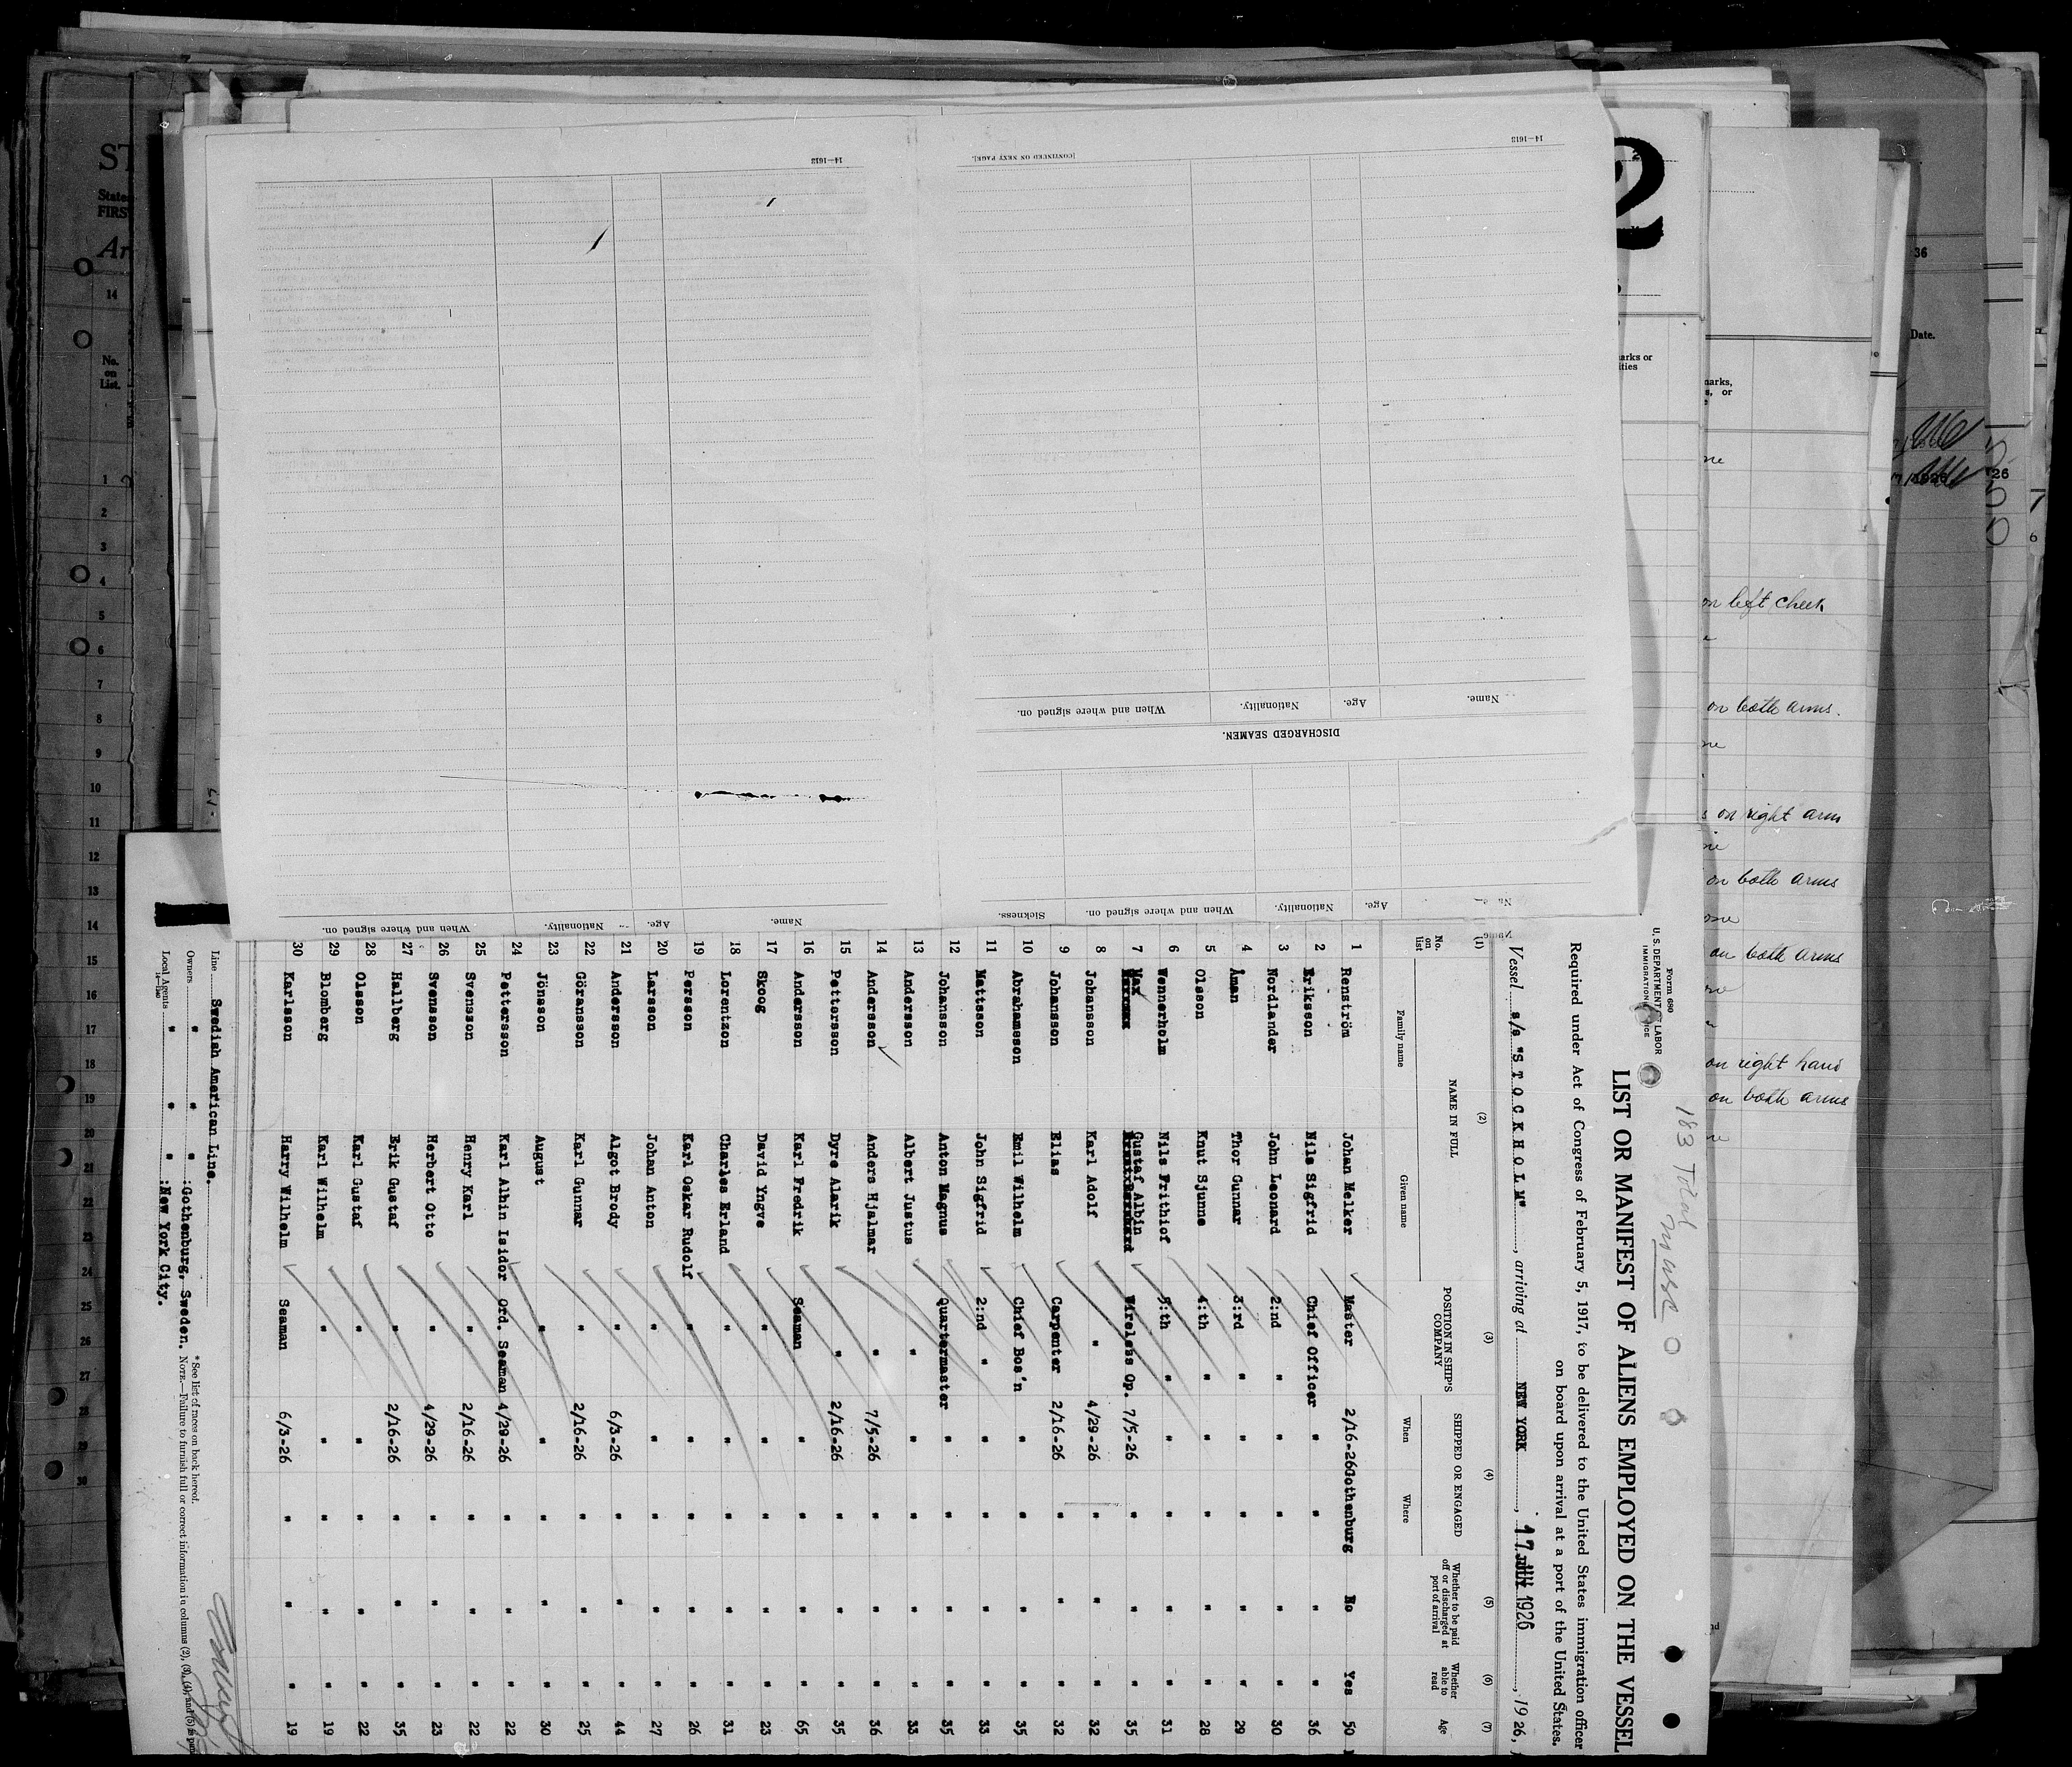 Form 680
U. S. DEPARTMENT OF LABOR
IMMIGRATION SERVICE
183 Total
LIST OR MANIFEST OF ALIENS EMPLOYED ON THE VESSEL
Required under Act of Congress of February 5, 1917, to be delivered to the United States immigration officer
on board upon arrival at a port of the United States.
Vessel s/s "S T O C K H O L M", arriving at NEW YORK, 17 1926, 1926,
(1) (2) (3) (4) (5) (6) (7)
No. on list NAME IN FULL POSITION IN SHIP'S COMPANY SHIPPED OR ENGAGED Whether to be paid off or discharged at port of arrival Whether able to read Age
Family name Given name When Where
1 Renström Johan Melker Master 2/16-26 Gothenburg No Yes 50
2 Eriksson Nils Sigfrid Chief Officer " " " " 36
3 Nordlander John Leonard 2:nd " " " " " 30
4 Åman Thor Gunnar 3:rd " " " " " 29
5 Olsson Knut Sjunne 4:th " " " " " 28
6 Wennerholm Nils Frithiof 5:th " " " " " 31
7 Max Gustaf Albin Wireless Op. 7/5-26 " " " 35
8 Johansson Karl Adolf " 4/29-26 " " " 32
9 Johansson Elias Carpenter 2/16-26 " " " 32
10 Abrahamsson Emil Wilhelm Chief Bos'n " " " " 35
11 Mattsson John Sigfrid 2:nd " " " " " 33
12 Johansson Anton Magnus Quartermaster " " " " 35
13 Andersson Albert Justus " " " " " 33
14 Andersson Anders Hjalmar " 7/5-26 " " " 36
15 Pettersson Dyre Alarik " 2/16-26 " " " 35
16 Andersson Karl Fredrik Seaman " " " " 65
17 Skoog David Yngve " " " " " 23
18 Lorentzon Charles Erland " " " " " 31
19 Persson Karl Oskar Rudolf " " " " " 26
20 Larsson Johan Anton " " " " " 27
21 Andersson Algot Brody " 6/3-26 " " " 44
22 Göransson Karl Gunnar " 2/16-26 " " " 25
23 Jönsson August " " " " " 30
24 Pettersson Karl Albin Isidor Ord. Seaman 4/29-26 " " " 22
25 Svensson Henry Karl " 2/16-26 " " " 22
26 Svensson Herbert Otto " 4/29-26 " " " 23
27 Hallberg Erik Gustaf " 2/16-26 " " " 35
28 Olsson Karl Gustaf " " " " " 22
29 Blomberg Karl Wilhelm " " " " " 19
30 Karlsson Harry Wilhelm Seaman 6/3-26 " " " 19
Line Swedish American Line.
Owners " " " :Gothenburg, Sweden.
Local Agents " " " :New York City.
* See list of races on back hereof.
NOTE.—Failure to furnish full or correct information in columns (2), (3), (4), and (5) is
14—1613
[CONTINUED ON NEXT PAGE].
14—1613
Name. Age. Nationality. When and where signed on.
DISCHARGED SEAMEN.
Age. Nationality. When and where signed on. Sickness.
Name. Age. Nationality. When and where signed on.
2
36
Date.
26
on left cheek
on both arms.
on right arm
on both arms
on both arms
on right hand
on both arms
ST
State
FIRS
Ar
No. on List.
14
1
2
3
4
5
6
7
8
9
10
11
12
13
14
15
16
17
18
19
20
21
22
23
24
25
26
27
28
29
30